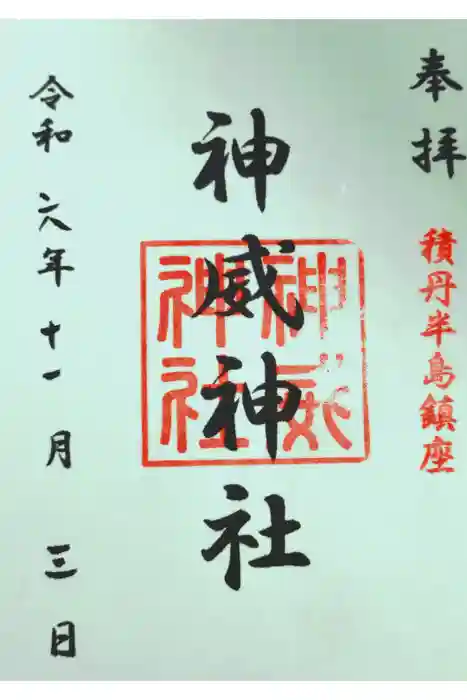 奉拝
積丹半島鎮座
神威神社
神威
神社
令和六年十一月三日